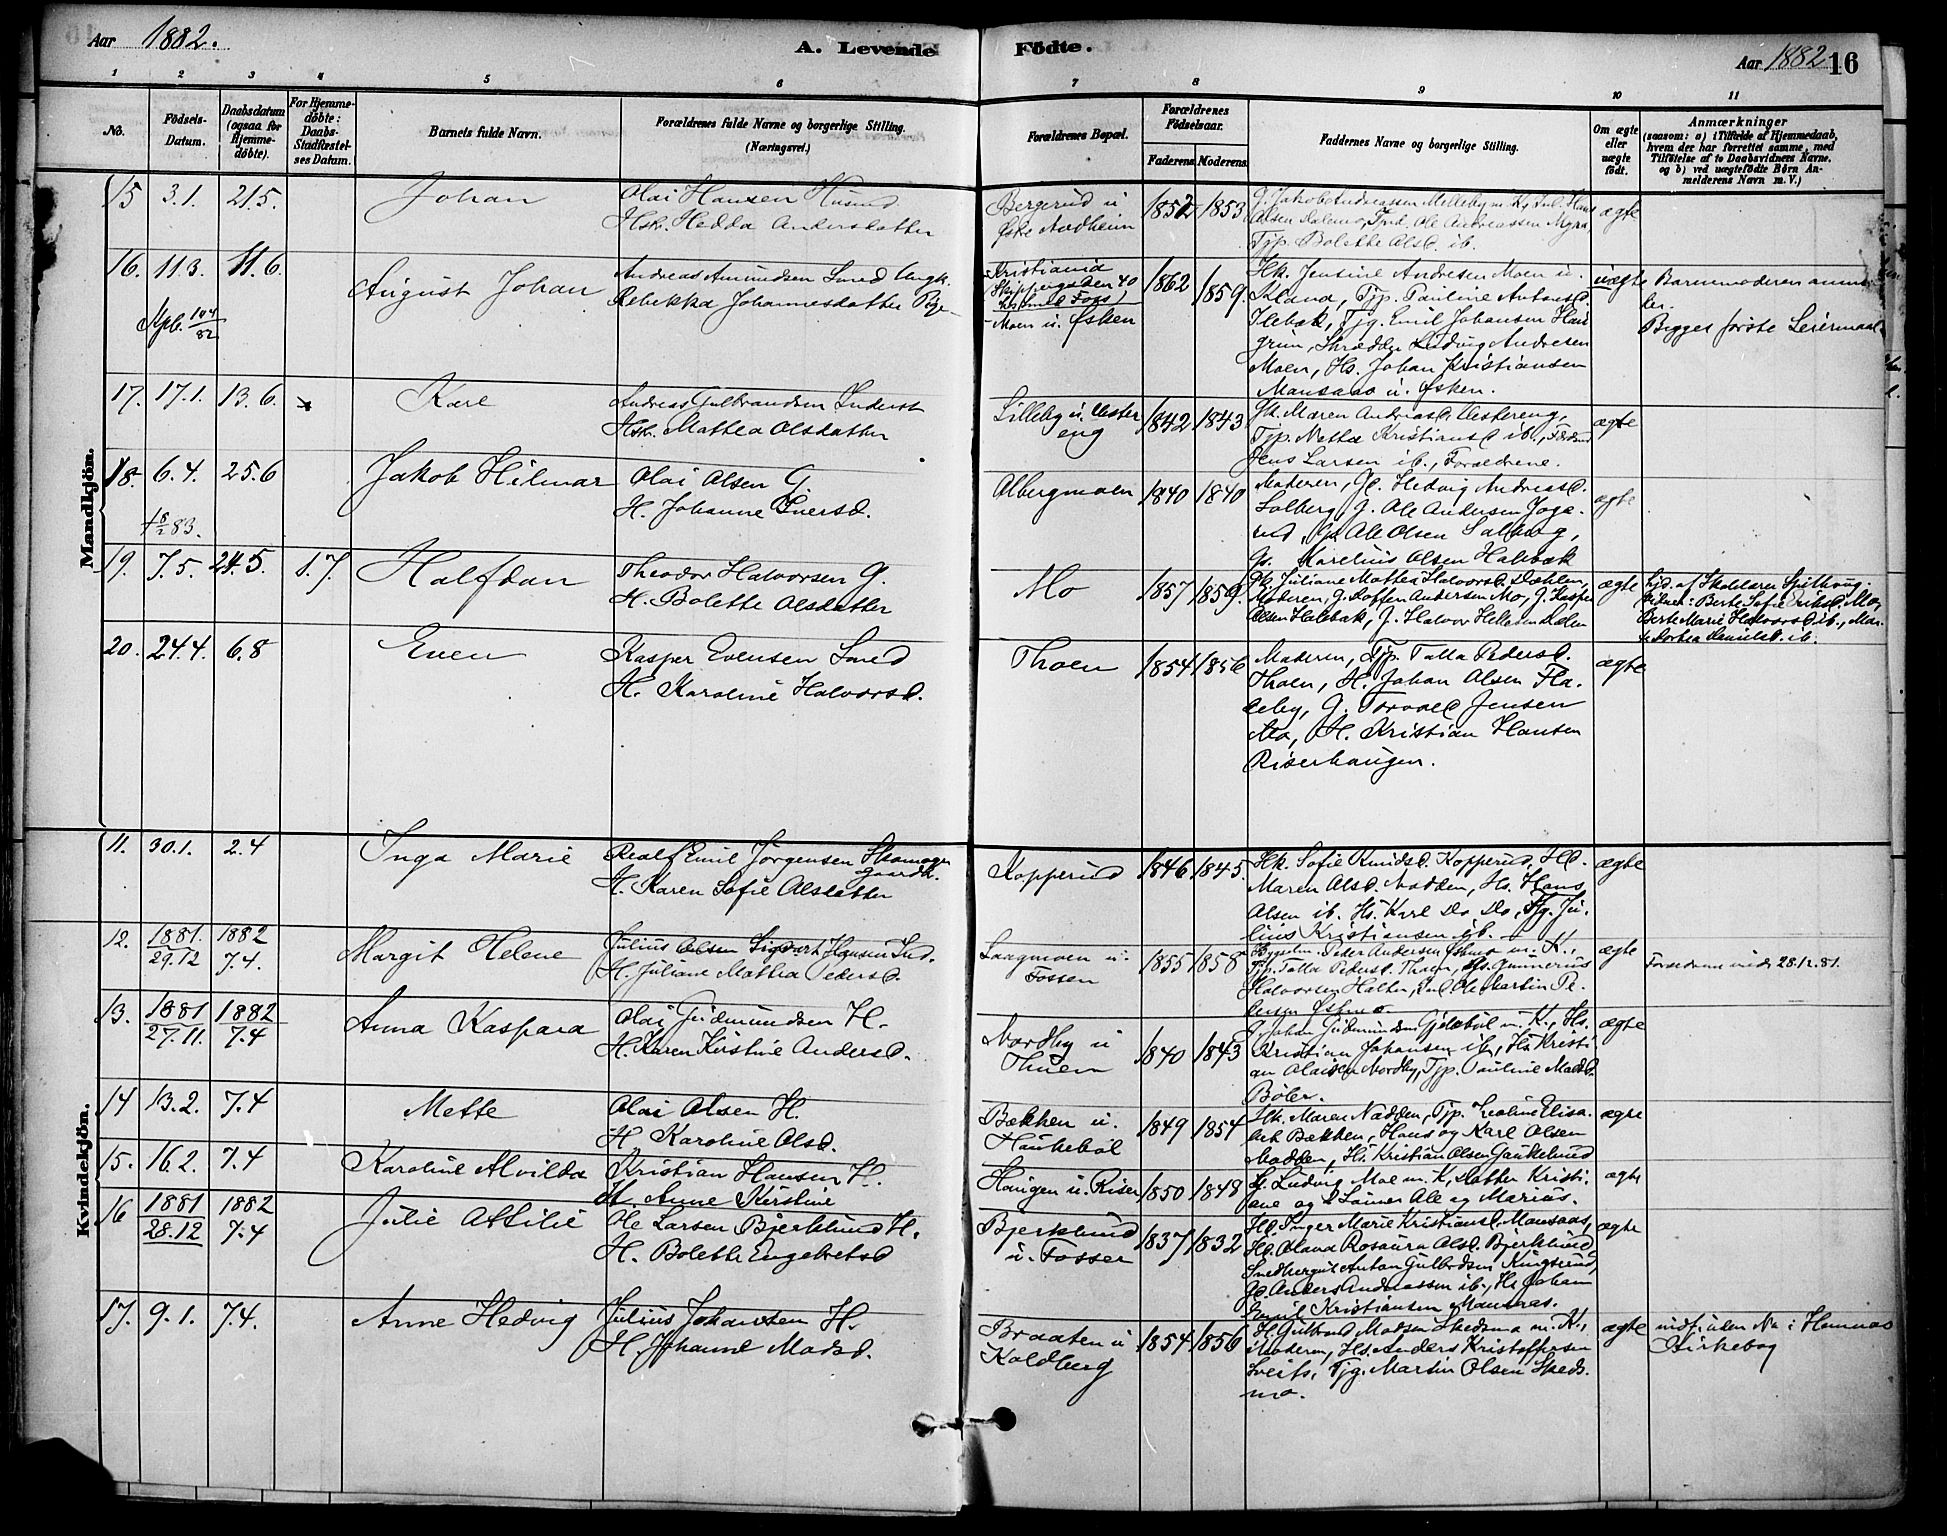 Aar 1882.
A. Levende Födte.
Aar 1882 16
1 2 3 4 5 6 7 8 9 10 11
No.
Födsels-
Datum.
Daabsdatum
(ogsaa for
Hjemme-
döbte).
For Hjemme-
döbte:
Daabs-
Stadfæstel-
ses Datum.
Barnets fulde Navn.
Forældrenes fulde Navne og borgerlige Stilling.
(Næringsvei.)
Forældrenes Bopæl.
Forældrenes
Födselsaar.
Faderens. Moderens.
Faddernes Navne og borgerlige Stilling.
Om ægte
eller
uægte
födt.
Anmærkninger
(saasom: a) i Tilfælde af Hjemmedaab,
hvem der har forrettet samme, med
Tilföielse af to Daabsvidners Navne,
og b) ved uægtefödte Börn An-
melderens Navn m. V.)
Mandkjön.
15 3.1. 21.5. Johan
Olai Hansen Husmd
Hsk. Hedda Andersdatter
Bergerud u
Øske Nordheim
1852 1853
G. Jakob Andreassen Melleby m. K,
Ole Andreassen Myra,
Tjp. Bolette Olsd. ib.
ægte
16. 11.3. 11.6.
104/82
August Johan
Andreas Amundsen Smed Ungk.
Rebekka Johannesdatter Pige
Kristiania
Skippergaden 40
Moen u. Øsken
1862 1859.
Hk. Jensine Andresen Moen u.
Tjp. Pauline Antonsd.
Ilebæk, Tjg. Emil Johansen
Skrædder Ludvig Andresen
Moen, Hs. Johan Kristiansen
Mansaas u. Øsken.
uægte
Barnemoderen anmel-
der.
Begges første Leiermaal
17. 17.1. 13.6. Karl
Andreas Gulbrandsen Inderst
Hsk. Mathea Olsdatter
Lilleby u. Vester
eng
1842 1843
Maren Andreasd. Vestereng,
Tjp. Mathea Kristiansd ib.,
Jens Larsen ib., Forældrene.
ægte
18. 6.4. 25.6
† 8/2 83.
Jakob Hilmar
Olai Olsen G.
H. Johanne Iversd.
Olbergmoen
1840 1840
Moderen, Hedvig Andreasd.
Solberg, G. Ole Andersen Joga-
rud, Ole Olsen Solberg,
Gs. Karelius Olsen Halebæk
ægte
19. 7.5. 24.5. 1.7. Halfdan
Theodor Halvorsen G.
H. Bolette Olsdatter
Mo
1857 1859.
Juliane Mathea Halvorsd. Dæhlen,
Moderen, G. Andersen Mo, G. Kasper
Olsen Halebæk, G. Halvor
ægte
Hjd. af Skolelærer
Berte Sofie Eriksd. Mo,
Berte Marie Halvorsd. ib.,
20. 24.4. 6.8 Even
Kasper Evensen Smed
H. Karoline Halvorsd.
Thoen
1854 1856
Moderen, Tjp. Talla Pedersd.
Thoen, H. Johan Olsen Fla-
deby, G. Torvald Jensen
Mo, H. Kristian Hansen
Riserhaugen.
ægte
Kvindekjön.
11. 30.1. 2.4 Inga Marie
Realf Emil Jørgensen Skomager
Gaardb.
H. Karen Sofie Olsdatter
Kopperud
1846 1845.
Hk. Sofie Knudsd. Kopperud,
Maren Olsd. Nadden, Hs. Hans
Olsen ib. Hs. Karl Do Do, Tjg. Ju-
lius Kristiansen ib.
ægte
12. 1881. 29.12 1882 7.4. Margit Helene
Julius Olsen Sigvart Hansen
H. Juliane Mathea Pedersd.
Laagmoen u.
Fossen
1855 1858
Peder Andersen m. K.,
Tjp. Talla Pedersd. Thoen, Gunnerius
Halvorsen Halter, Ole Martin Pe-
dersen
ægte
28.12.81.
13. 1881 27.11. 1882 7.4 Anna Kaspara
Olai Gudmundsen H.
H. Karen Kirstine Andersd.
Nordby u
Thuen
1840 1843
Johan Gudmundsen Gjelebøl m. K., Hs.
Kristian Johansen ib., Hs. Kristi
an Olaisen Nordby, Tjp. Pauline Madsd.
Bøler.
ægte
14 13.2. 7.4 Mette
Olai Olsen H.
H Karoline Olsd.
Bækken u.
Haukebøl
1849 1854
Hk. Maren Nadden, Tjp. Elisa-
bet Bækken, Hans og Karl Olsen
Nadden, Hs. Kristian Olsen Gaukelund
ægte
15. 16.2. 7.4 Karoline Alvilda
Kristian Hansen H.
H. Anne Kirstine
Haugen u. Riser
1850 1848
Ludvig Moe m. K, Datter Kristi-
ane og 2 Sønner Ole og Marius.
ægte
16 1881 28.12 1882 7.4 Julie Attilie
Ole Larsen Bjerklund H.
H. Bolette Engebretsd
Bjerklund
u. Fosser
1837 1832
Inger Marie Kristiansd. Mansaas,
Olava Rosaura Olsd. Bjerklund,
Anton Gulbrdsen Kungsrud,
Anders Andreassen ib., Hs. Johan
Emil Kristiansen Mansaas.
ægte
17. 9.1. 7.4. Anne Hedvig
Julius Johansen H.
H. Johanne Madsd.
Braaten u
Koldberg
1854 1856
H. Gulbrand Madsen Skedsmo m. K.,
Moderen, Hs. Anders Kristoffersen
Sveits, Tjg. Martin Olsen Skeds-
mo.
ægte
indf. uden No i Hemnæs
Kirkebog